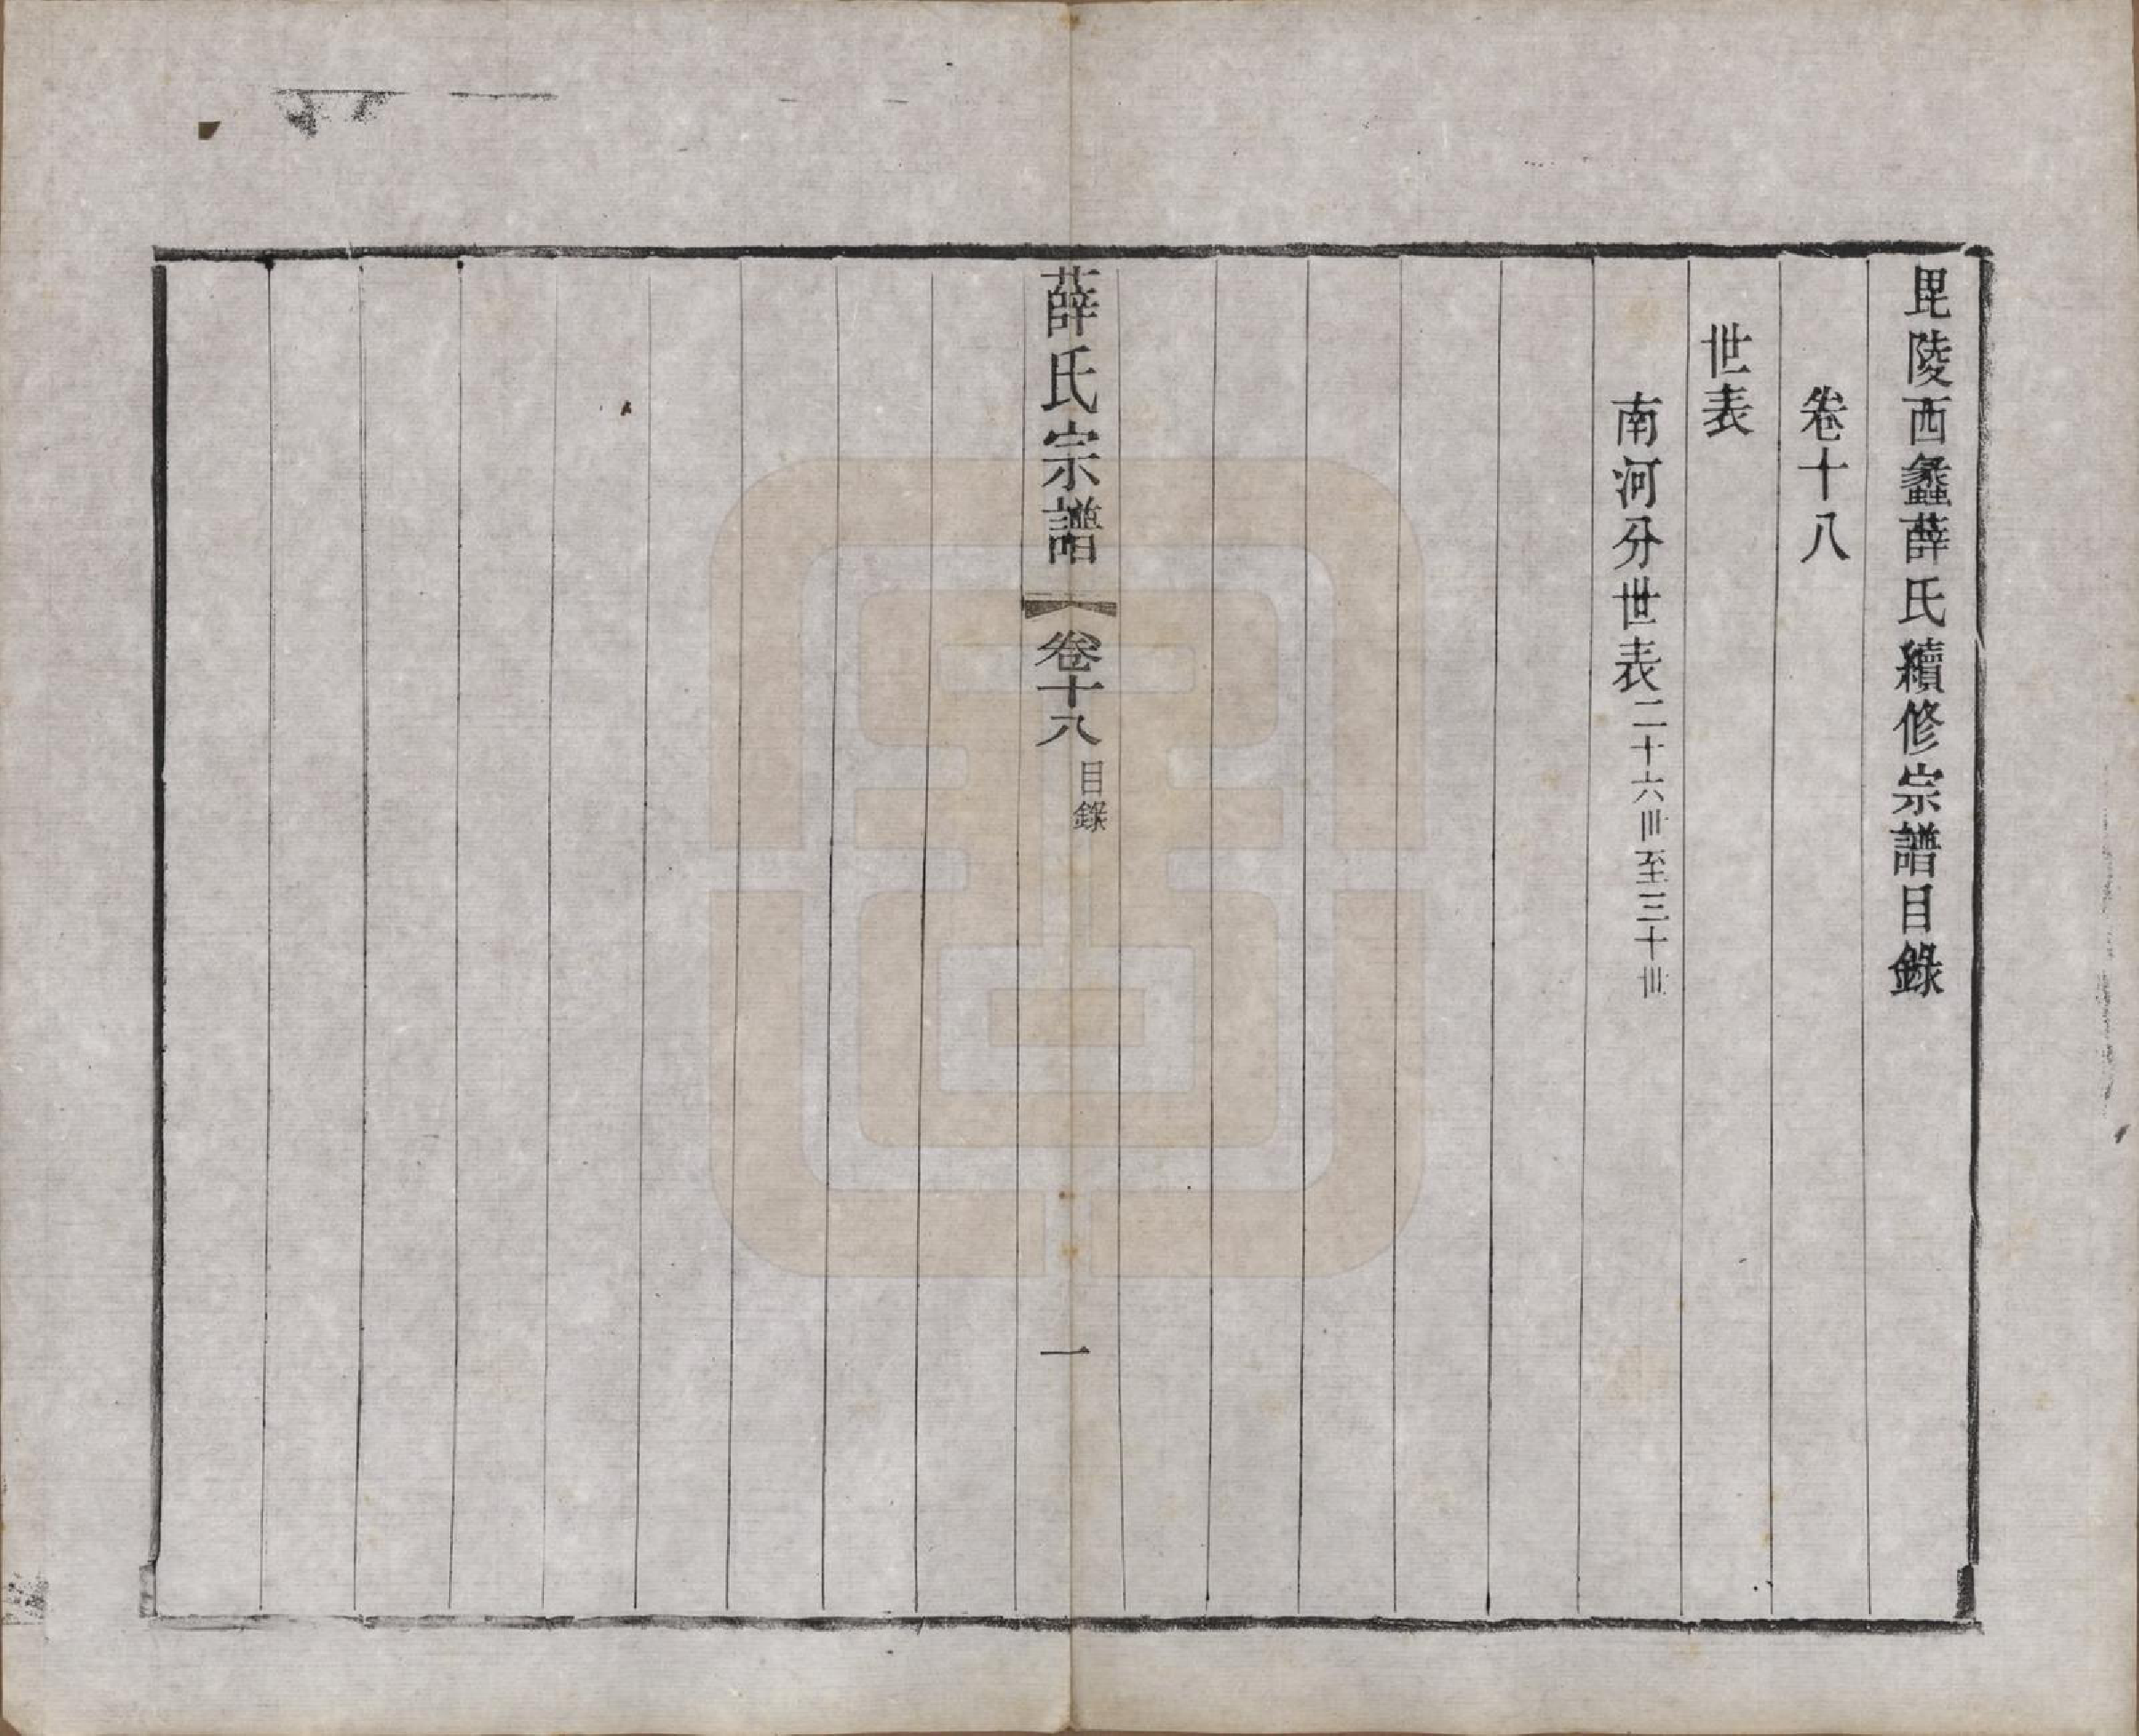 毘陵西蠡薛氏續修宗譜目錄
卷十八
世表
南河分世表二十六世至三十世
薛氏宗譜 卷十八 目錄 一